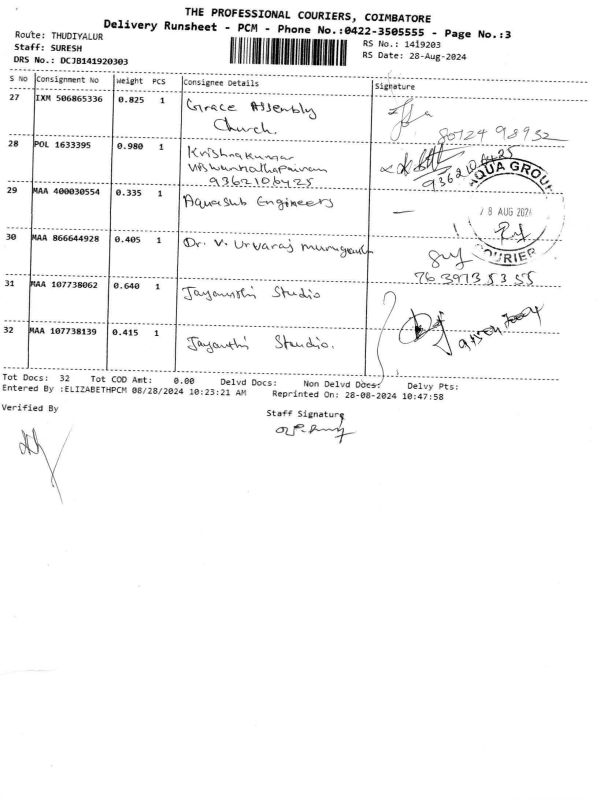 THE PROFESSIONAL COURIERS, COIMBATORE
Delivery Runsheet - PCM - Phone No.:0422-3505555 - Page No.:3
Route: THUDIYALUR
RS No.: 1419203
Staff: SURESH
RS Date: 28-Aug-2024
DRS No.: DCJB141920303
S No Consignment No Weight PCS Consignee Details Signature
27 IXM 506865336 0.825 1 Grace Assembly
Church.
80724 98932
28 POL 1633395 0.980 1 Krishnakumar
9362106425
9362106425
29 MAA 400030554 0.335 1 Aquasub Engineers —
AQUA GROUP
28 AUG 2024
COURIER
30 MAA 866644928 0.405 1 Dr. V. Urvaraj Murugesan
76 397 35355
31 MAA 107738062 0.640 1 Jayanthi Studio
32 MAA 107738139 0.415 1 Jayanthi Studio.
Tot Docs: 32 Tot COD Amt: 0.00 Delvd Docs: Non Delvd Docs: Delvy Pts:
Entered By :ELIZABETHPCM 08/28/2024 10:23:21 AM Reprinted On: 28-08-2024 10:47:58
Verified By
Staff Signature